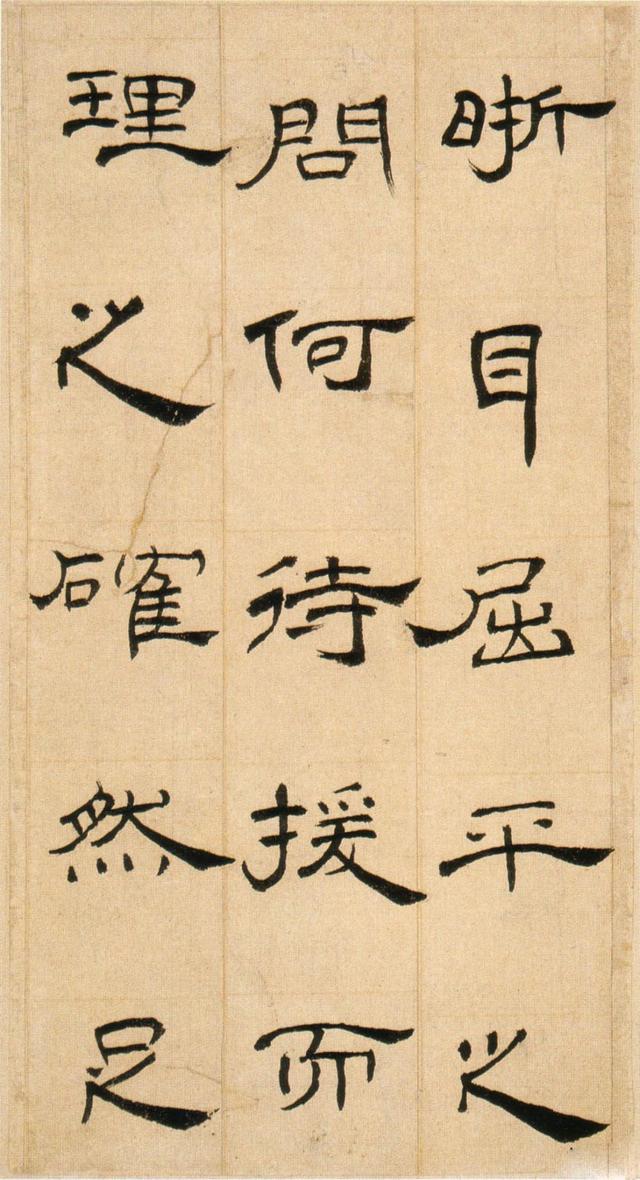 晣耳屈平之
問何待援而
理之確然足